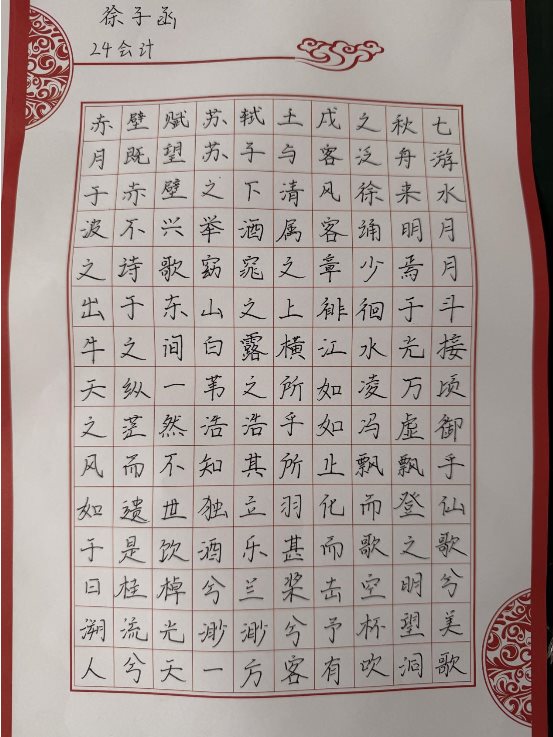 徐子函
24会计
赤壁赋苏轼土戌之秋七
月既望苏子与客泛舟游
于赤壁之下清风徐来水
波不兴举酒属客诵明月
之诗歌窈窕之章少焉月
出于东山之上徘徊于斗
牛之间白露横江水光接
天纵一苇之所如凌万顷
之茫然浩浩乎如冯虚御
风而不知其所止飘飘乎
如遗世独立羽化而登仙
于是饮酒乐甚而歌之歌
曰桂棹兮兰桨击空明兮
溯流光渺渺兮予杯望美
人兮天一方客有吹洞歌